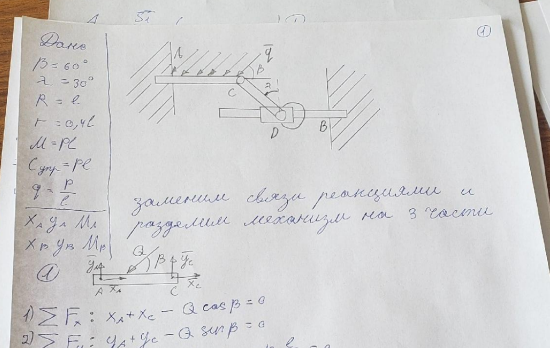 ①
Дано
β = 60°
α = 30°
R = l
r = 0,4l
M = Pl
Cупр = Pl
q = P/l
XA YA MA
XB YB MB
A q β
C 2
D B
заменим связи реакциями и
разделим механизм на 3 части
① yA Q β yC
A XA C XC
1) ∑ Fx : XA + XC − Q cosβ = 0
2) ∑ Fy : yA + yC − Q sinβ = 0